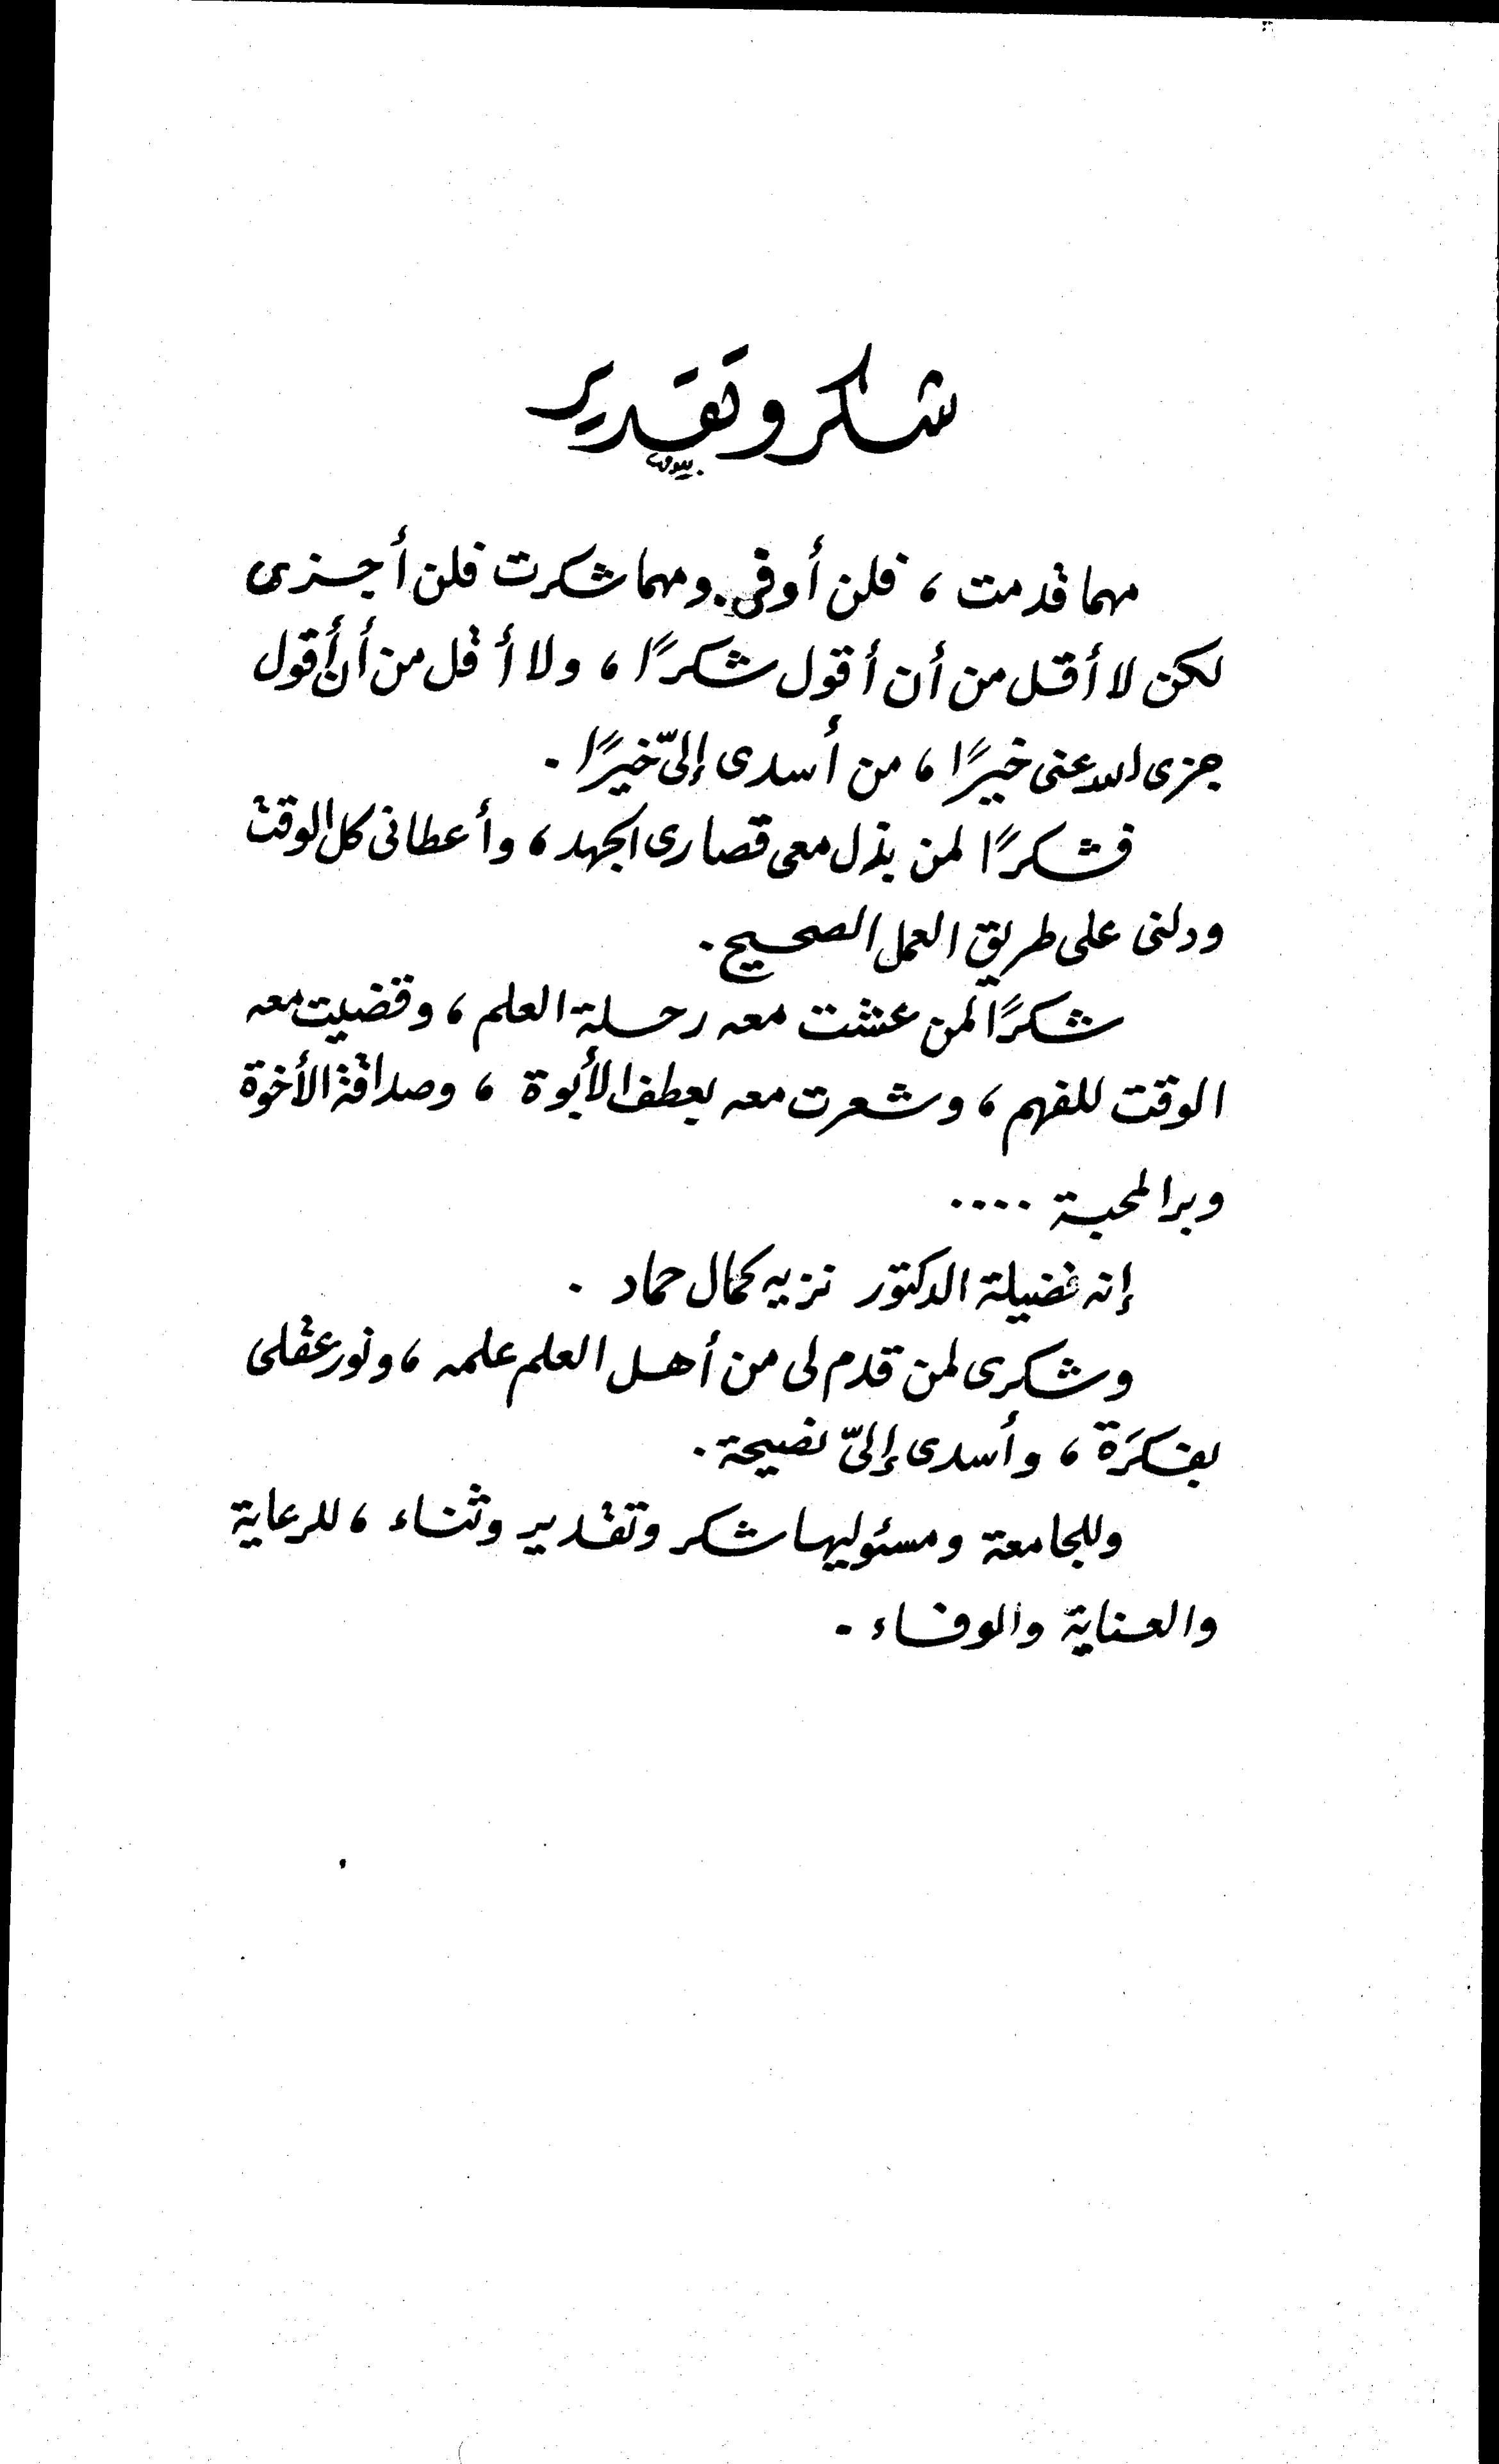 شكر وتقدير
مهما قدمت ، فلن أوفى . ومهما شكرت فلن أجزى
لكن لا أقل من أن أقول شكرًا ، ولا أقل من أن أقول
جزى الله عنى خيرًا ، من أسدى إلىّ خيرًا .
فشكرًا لمن بذل معى قصارى الجهد ، وأعطانى كل الوقت
ودلنى على طريق العمل الصحيح .
شكرًا لمن عشت معه رحلة العلم ، وقضيت معه
الوقت للفهم ، وشعرت معه بعطف الأبوة ، وصداقة الأخوة
وبر المحبة ....
إنه فضيلة الدكتور نزيه كمال حماد .
وشكرى لمن قدم لى من أهل العلم علمه ، ونور عقلى
بفكرَة ، وأسدى إلىّ نصيحة .
وللجامعة ومسئوليها شكر وتقدير وثناء ، للرعاية
والعناية والوفاء .